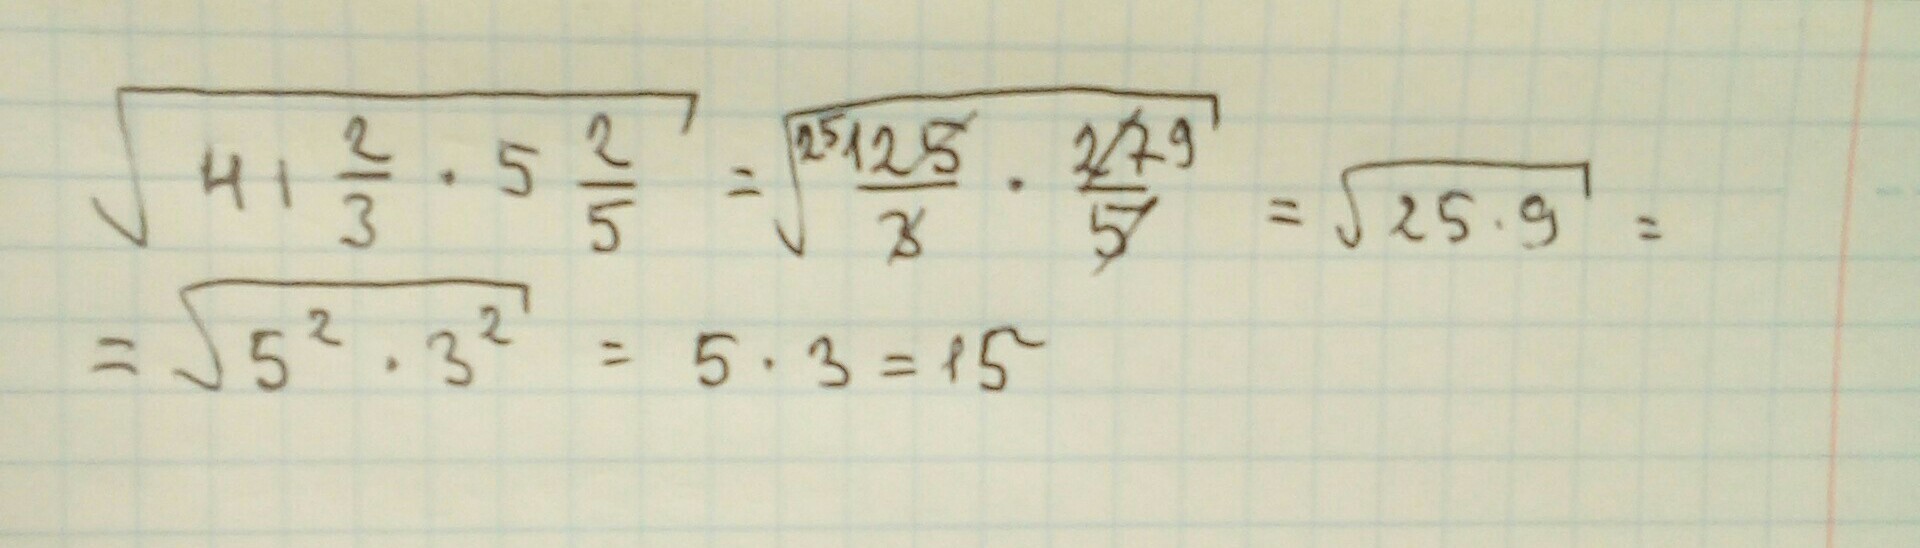 √(41 2/3 · 5 2/5) = √(25 125/3 · 27 9/5) = √(25 · 9) =
= √(5² · 3²) = 5 · 3 = 15